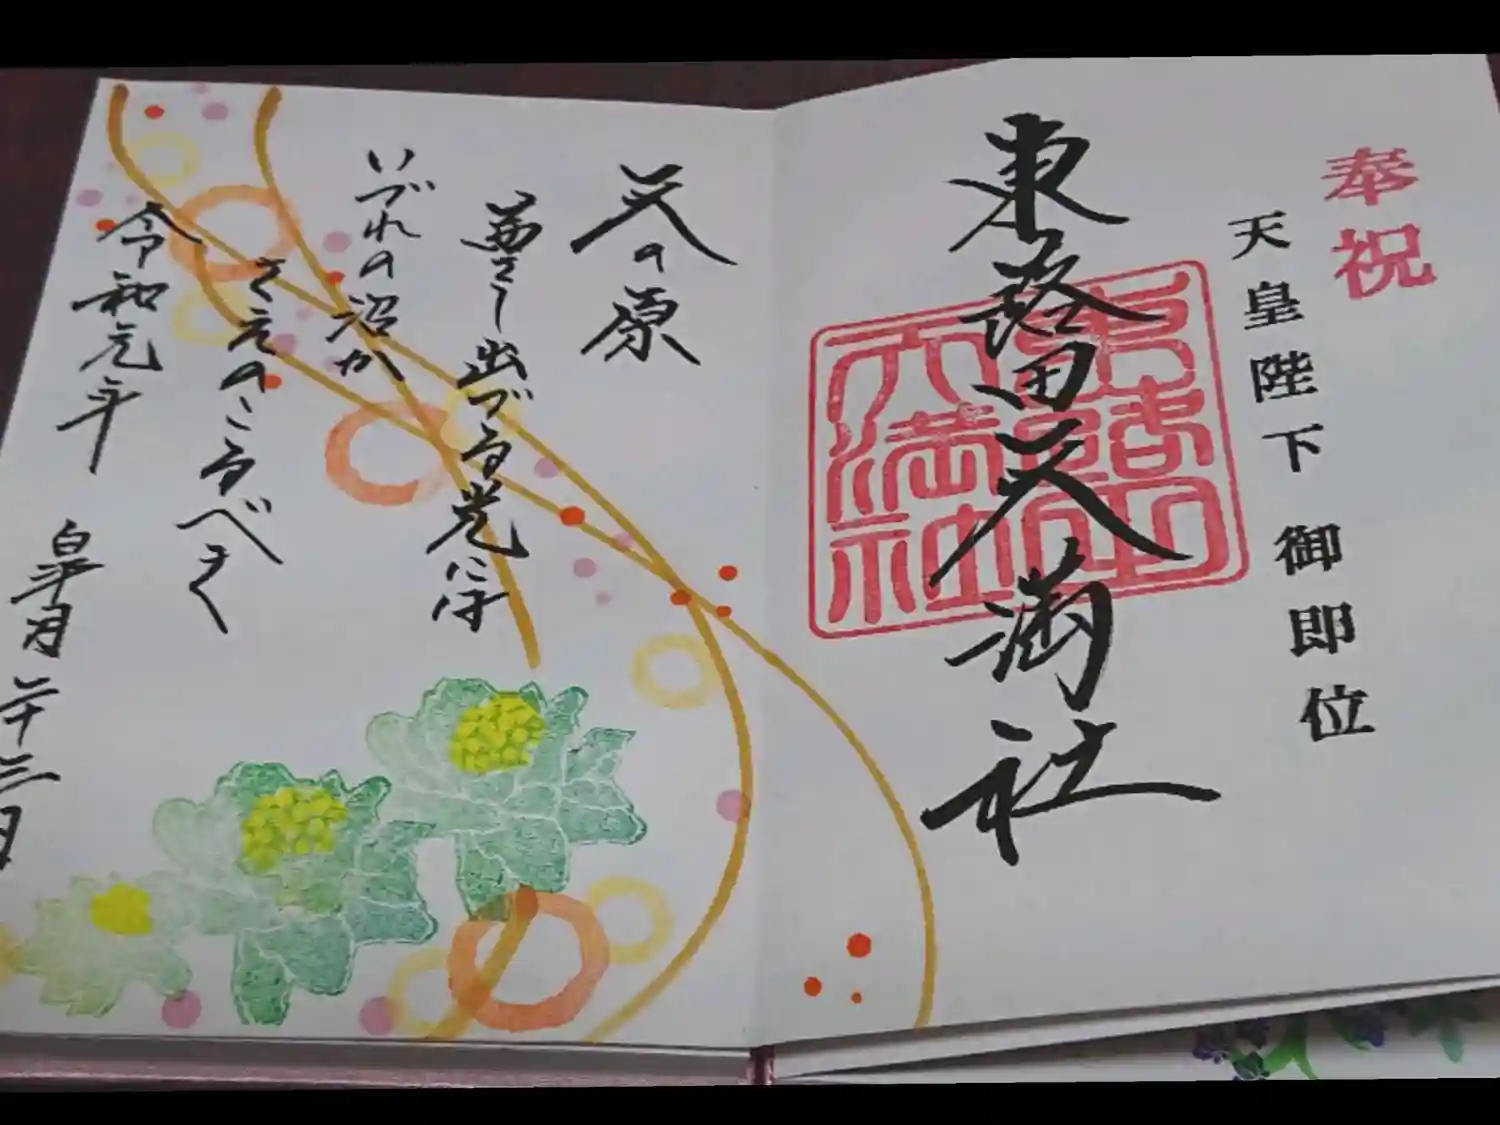 奉祝
天皇陛下 御即位
東蕗田天満社
東蕗田天満社
天の原
茜さし出づる光には
いづれの沼か
さえのこるべき
令和元年 皐月 二十三日